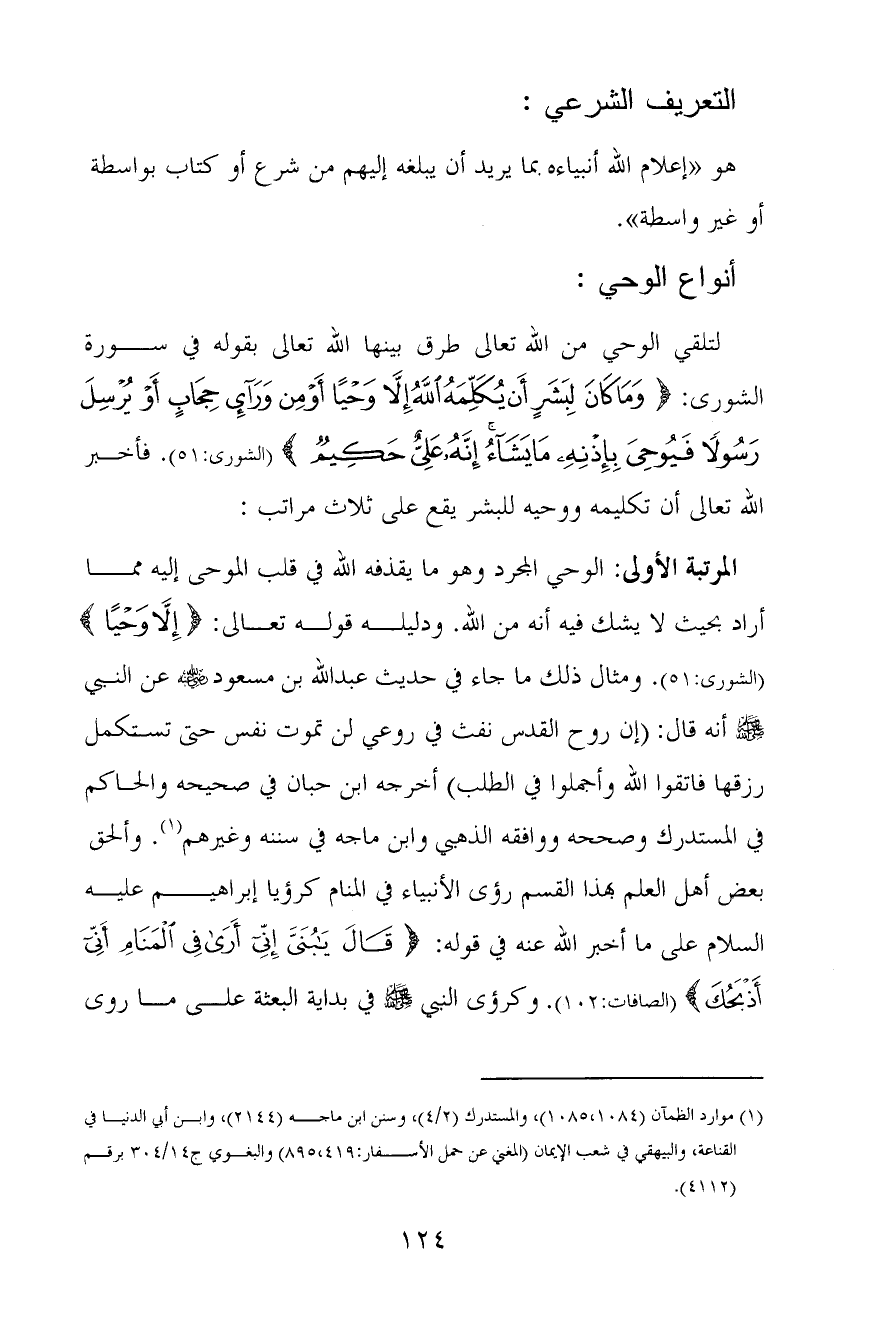 التعريف الشرعي :
هو «إعلام الله أنبياءه بما يريد أن يبلغه إليهم من شرع أو كتاب بواسطة
أو غير واسطة».
أنواع الوحي :
لتلقي الوحي من الله تعالى طرق بينها الله تعالى بقوله في ســـورة
الشورى: ﴿ وَمَا كَانَ لِبَشَرٍ أَن يُكَلِّمَهُ ٱللَّهُ إِلَّا وَحْيًا أَوْ مِن وَرَآئِ حِجَابٍ أَوْ يُرْسِلَ
رَسُولًا فَيُوحِىَ بِإِذْنِهِۦ مَا يَشَآءُ ۚ إِنَّهُۥ عَلِىٌّ حَكِيمٌ ﴾ (الشورى:٥١). فأخـــبر
الله تعالى أن تكليمه ووحيه للبشر يقع على ثلاث مراتب :
المرتبة الأولى: الوحي المجرد وهو ما يقذفه الله في قلب الموحى إليه ممـــا
أراد بحيث لا يشك فيه أنه من الله. ودليلـــه قولـــه تعـــالى: ﴿ إِلَّا وَحْيًا ﴾
(الشورى:٥١). ومثال ذلك ما جاء في حديث عبدالله بن مسعود رضي الله عنه عن النـبي
ﷺ أنه قال: (إن روح القدس نفث في روعي لن تموت نفس حتى تستكمل
رزقها فاتقوا الله وأجملوا في الطلب) أخرجه ابن حبان في صحيحه والحـاكم
في المستدرك وصححه ووافقه الذهبي وابن ماجه في سننه وغيرهم(١). وألحق
بعض أهل العلم بهذا القسم رؤى الأنبياء في المنام كرؤيا إبراهيـــم عليـــه
السلام على ما أخبر الله عنه في قوله: ﴿ قَالَ يَٰبُنَىَّ إِنِّىٓ أَرَىٰ فِى ٱلْمَنَامِ أَنِّىٓ
أَذْبَحُكَ ﴾ (الصافات:١٠٢). وكرؤى النبي ﷺ في بداية البعثة علـــى مـــا روى
(١) موارد الظمآن (١٠٨٤،١٠٨٥)، والمستدرك (٤/٢)، وسنن ابن ماجـــه (٢١٤٤)، وابـــن أبي الدنيـــا في
القناعة، والبيهقي في شعب الإيمان (المغني عن حمل الأســـفار:٨٩٥،٤١٩) والبغـــوي ج٣٠٤/١٤ برقـــم
(٤١١٢).
١٢٤